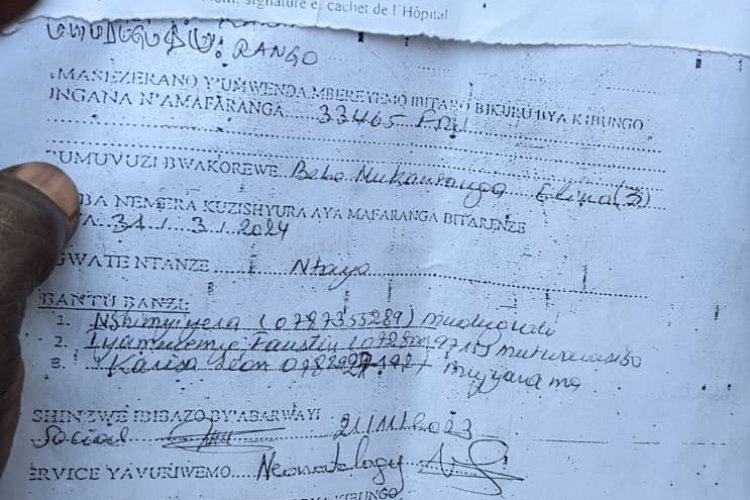 signature e, cachet de l'Hôpital
UMUDUGUDU: RANGO
MASEZERANO Y'UMWENDA MBEREYEMO IBITARO BIKURU BYA KIBUNGO
INGANA N'AMAFARANGA 33465 FRW
UMUVUZI BWAKOREWE Bebe Mukansanga Elina (3)
BA NEMERA KUZISHYURA AYA MAFARANGA BITARENZE
31 / 3 / 2024
GWATE NTANZE Ntayo
BANTU BANZI:
1. Nshimyiyera (0787355289) mudugudu
2. Faustin
3. Karisa Léon mujyanama
SHINZWE IBIBAZO BY'ABARWAYI
Social 21/11/2023
ERVICE YAVURIWEMO Neonatology
KIBUNGO